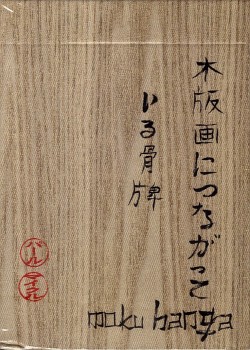 木版画につながって
いる骨牌
moku hanga